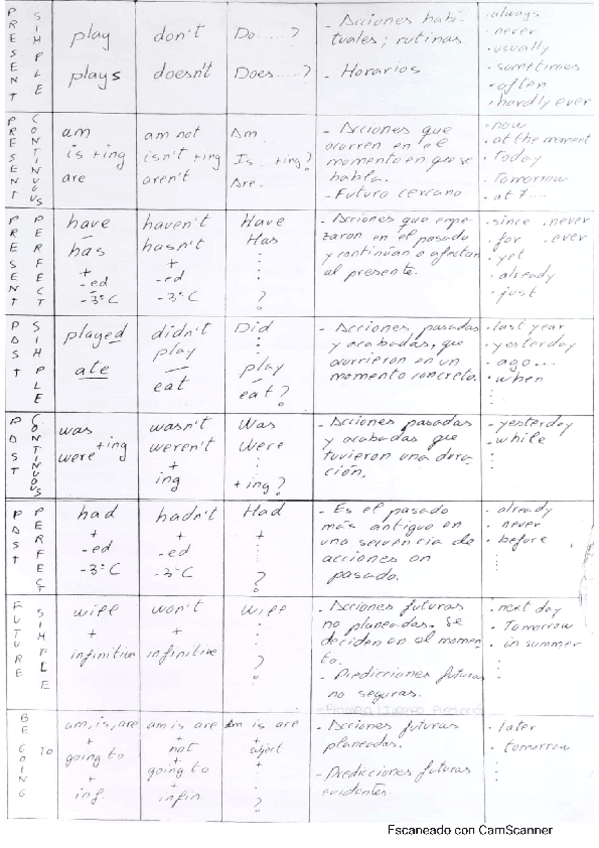 PRESENT SIMPLE
play
plays
don't
doesn't
Do.....?
Does.....?
- Acciones habi-
tuales; rutinas.
- Horarios
· always
· never
· usually
· sometimes
· often
· hardly ever
PRESENT CONTINUOUS
am
is +ing
are
am not
isn't +ing
aren't
Am
Is +ing?
Are
- Acciones que
ocurren en el
momento en que se
habla.
- Futuro cercano
· now
· at the moment
· Today
· Tomorrow
· at 7....
PRESENT PERFECT
have
has
+
-ed
-3ªC
haven't
hasn't
+
-ed
-3ªC
Have
Has
?
- Acciones que empe-
zaron en el pasado
y continúan o afectan
al presente.
· since · never
· for · ever
· yet
· already
· just
PAST SIMPLE
played
ate
didn't
play
eat
Did
play
eat?
- Acciones, pasadas
y acabadas, que
ocurrieron en un
momento concreto.
· last year
· yesterday
· ago...
· when
PAST CONTINUOUS
was
were +ing
wasn't
weren't
+
ing
Was
Were
+ing?
- Acciones pasadas
y acabadas que
tuvieron una dura-
ción.
- yesterday
- while
PAST PERFECT
had
+
-ed
-3ªC
hadn't
+
-ed
-3ªC
Had
+
?
- Es el pasado
más antiguo en
una secuencia de
acciones en
pasado.
· already
· never
· before
FUTURE SIMPLE
will
+
infinitive
won't
+
infinitive
Will
?
- Acciones futuras
no planeadas. Se
deciden en el momen-
to.
- Predicciones futuras
no seguras.
· next day
· Tomorrow
· in summer
BE GOING TO
am, is, are
+
going to
+
inf.
am is are
+
not
going to
+
infin.
Am is are
+
subject
+
?
- Acciones futuras
planeadas.
- Predicciones futuras
evidentes.
· later
· tomorrow
Escaneado con CamScanner